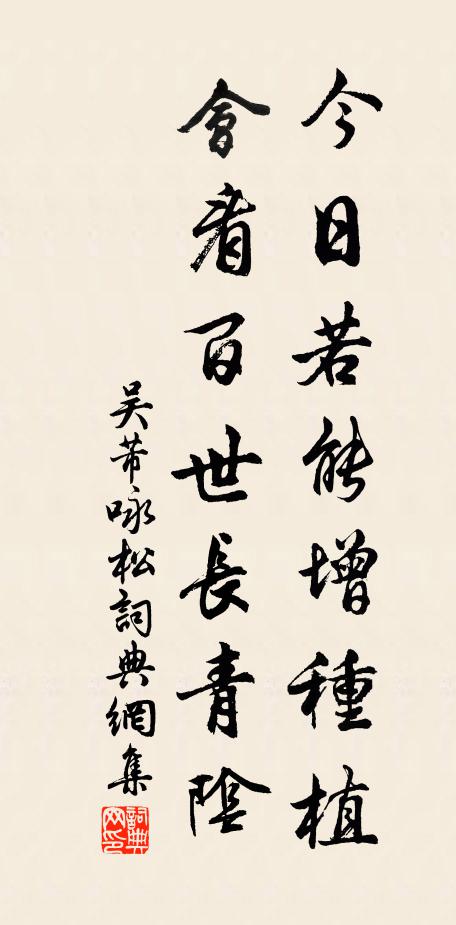 今日若能增種植
會看百世長青陰
吳芾咏松詞典網集
詞典網印